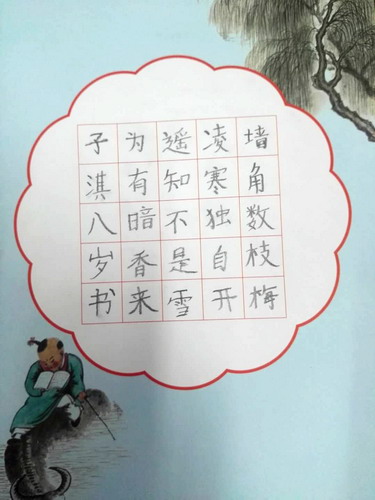 墙角数枝梅
凌寒独自开
遥知不是雪
为有暗香来
子淇八岁书